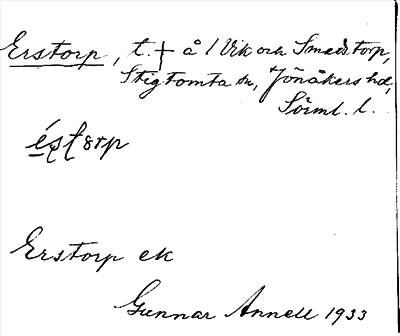 Erstorp, t. † å 1 Vik och Smedstorp,
Stigtomta sn, Jönåkers hd,
Sörml. l.
Erstorp ek
Gunnar Annell 1933